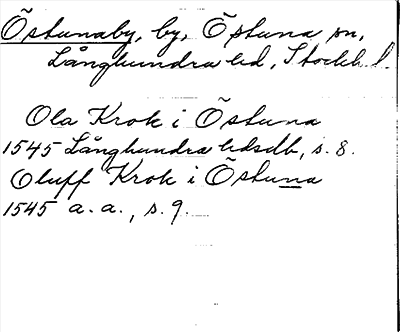 Östunaby, by, Östuna sn,
Långhundra hd, Stockh. l.
Ola Krok i Östuna
1545 Långhundra hdsdb, s. 8.
Oluff Krok i Östuna
1545 a.a., s. 9.